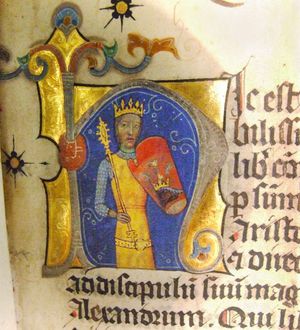 Hic est
bilissi
lib cōn
p sūm
Aristo
ad discipulū suū mag
Alexandrum. Qui li